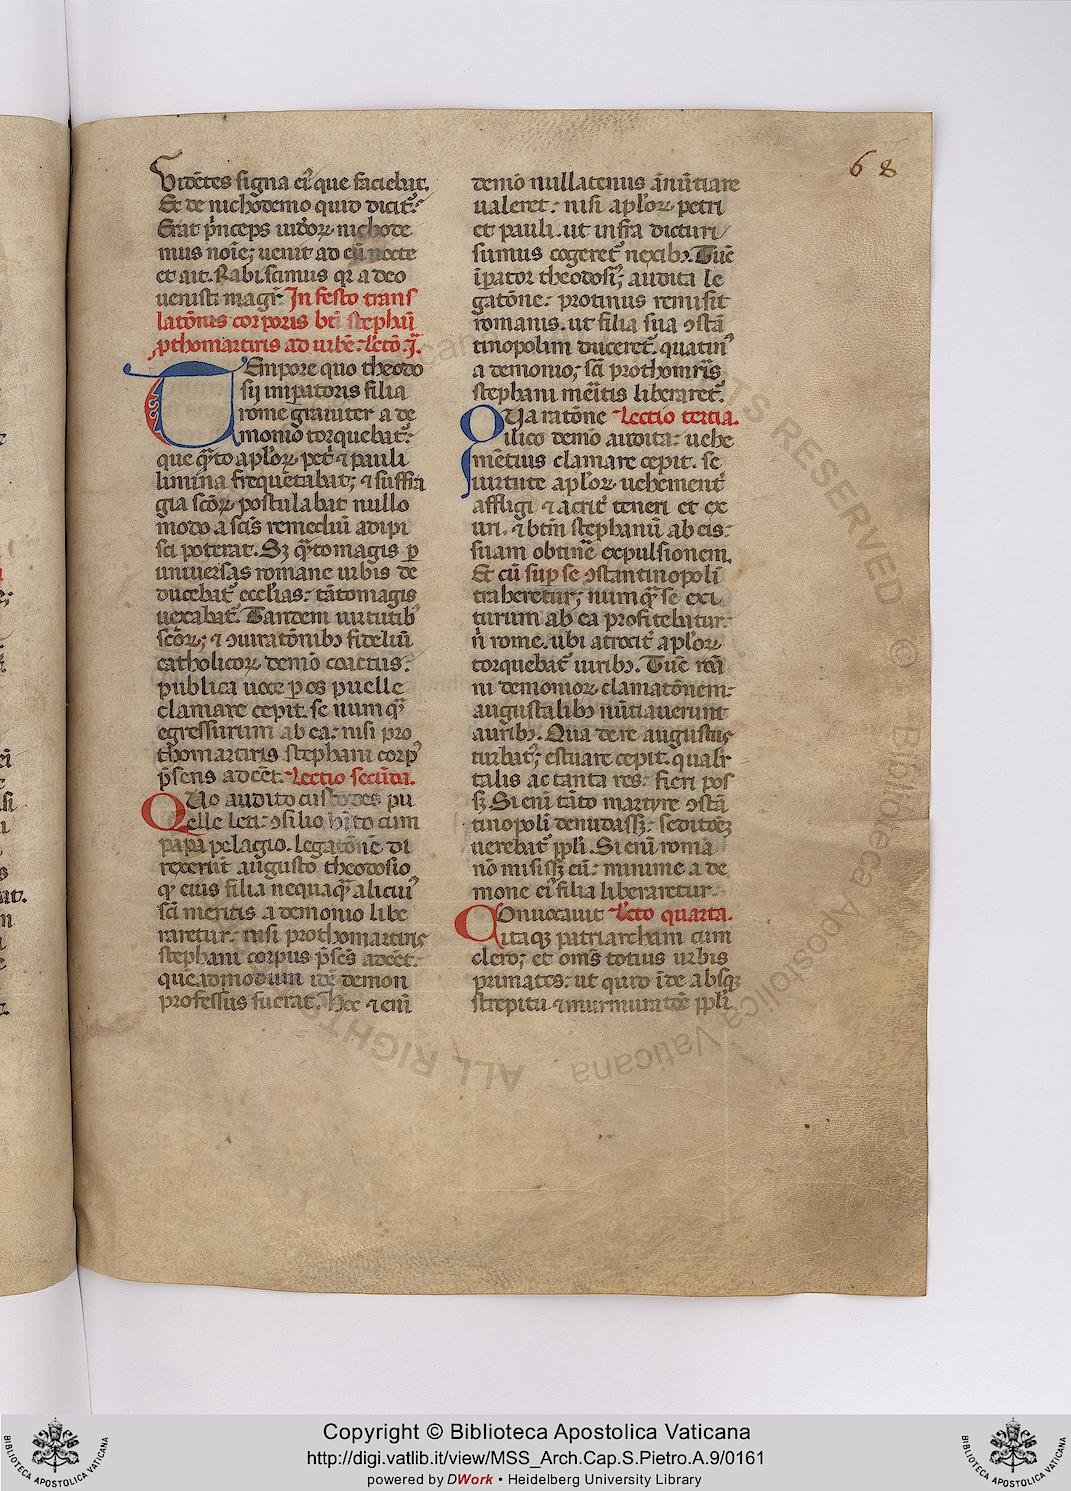 68
Vidētes signa eī que faciebāt.
Et de nichodemo quid dicit̄.
Erat p̄nceps iudeoꝝ nichode
mus noīe; uenit ad eū nocte
et ait. Rabi scimus qr a deo
uenisti magr̄. In festo trans
latōnis corporis btī stephani
ꝓthomartiris ad urbē. Lectō .j.
Tempore quo theodo
sij imꝑatoris filia
rome grauiter a de
monio torquebat̄.
que q̄to apl'oꝝ pet̄ ⁊ pauli
limina frequētabat; ⁊ suffra
gia sc̄oꝝ postulabat nullo
modo a sc̄is remediū adipi
sci poterat. Sꝫ q̄tomagis ꝑ
uniuersas romane urbis de
ducebat̄ eccl'ias: tātomagis
uexabat̄. Tandem uirtutib'
sc̄oꝝ; ⁊ ꝯiuratōnibꝫ fideliū
catholicoꝝ demō coactus.
publica uoce ꝑ os puelle
clamare cepit. se num q̄
egressurum ab ea: nisi pro
thomartiris stephani corp'
p̄sens adeēt. Lectio secūda.
Quo audito custodes pu
elle leti: ꝯsilio hīto cum
papa pelagio. legatōnē di
rexerūt augusto theodosio
ꝙ eius filia nequaq̄ alicui'
sc̄i meritis a demonio libe
raretur: nisi prothomartiris
stephani corpus p̄sēs adeēt.
quēadmodum idē demon
professus fuerat. Hec ⁊ enī
demō nullatenus ānūtiare
ualeret: nisi apl'oꝝ petri
et pauli. ut infra dicturi
sumus cogeret̄ nexibꝫ. Tūc
īꝑator theodosi'; audita le
gatōne: protinus remisit
romanis. ut filia sua ꝯstā
tinopolim duceret̄. quatin'
a demonio; sc̄i prothomr̄is
stephani mēitis liberaret̄.
Qua ratōne Lectio tertia.
ilico demō audita: uehe
mētius clamare cepit. se
uirtute apl'oꝝ uehement̄
affligi ⁊ acrit̄ teneri et ex
uri. ⁊ btm̄ stephanū ab eis:
suam obtinē expulsionem.
Et cū suꝑ se ꝯstantinopoli
traheretur; numq̄ se exi
turum ab ea profitebitur:
n̄ rome. ubi atrocit̄ apl'oꝝ
torquebat̄ uiribꝫ. Tūc
demonioꝝ clamatōnem:
augustalibꝫ nūtiauerunt
auribꝫ. Qua de re augustus
turbat'; estuare cepit. qualr̄
talis ac tanta res: fieri pos
sꝫ. Si enī tāto martyre ꝯstā
tinopoli denudassꝫ: seditōeꝫ
uerebat̄ ppl̄i. Si enī roma
nō misissꝫ eū: minime a de
mone eī filia liberaretur.
Conuocauit Lectō quarta.
itaqꝫ patriarcham cum
clero; et om̄s totius urbis
primates: ut quid īde absqꝫ
strepitu ⁊ murmuratōe ppl̄i
ALL RIGHTS RESERVED © Biblioteca Apostolica Vaticana
Copyright © Biblioteca Apostolica Vaticana
http://digi.vatlib.it/view/MSS_Arch.Cap.S.Pietro.A.9/0161
powered by DWork • Heidelberg University Library
BIBLIOTECA APOSTOLICA VATICANA
BIBLIOTECA APOSTOLICA VATICANA